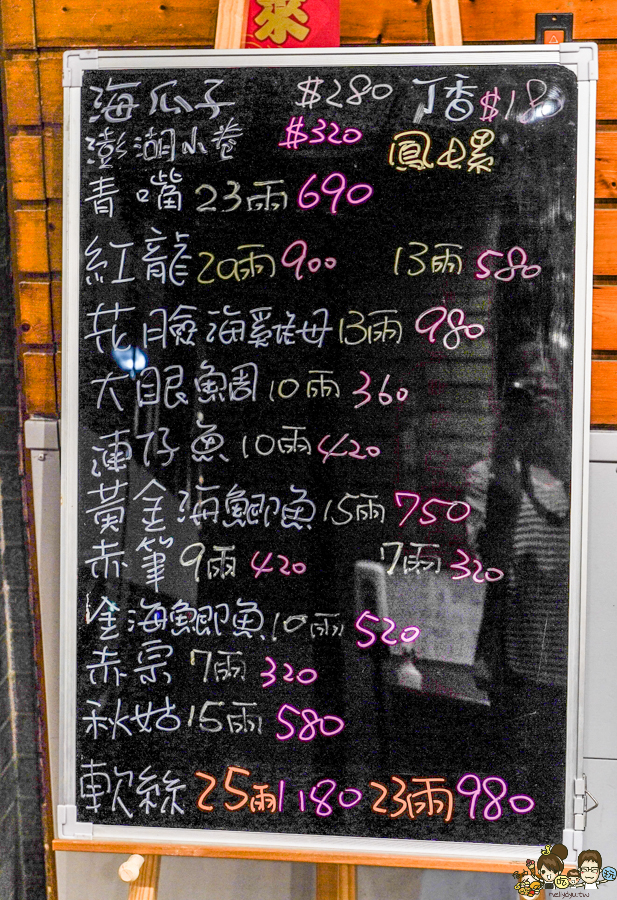 菜
海瓜子 $280 丁香 $18
澎湖小卷 $320 鳳螺
青嘴 23兩 690
紅龍 20兩 900 13兩 580
花臉海雞母 13兩 980
大眼鯛 10兩 360
連仔魚 10兩 420
黃金海鯽魚 15兩 750
赤筆 9兩 420 7兩 320
金海鯽魚 10兩 520
赤宗 7兩 320
秋姑 15兩 580
軟絲 25兩 1180 23兩 980